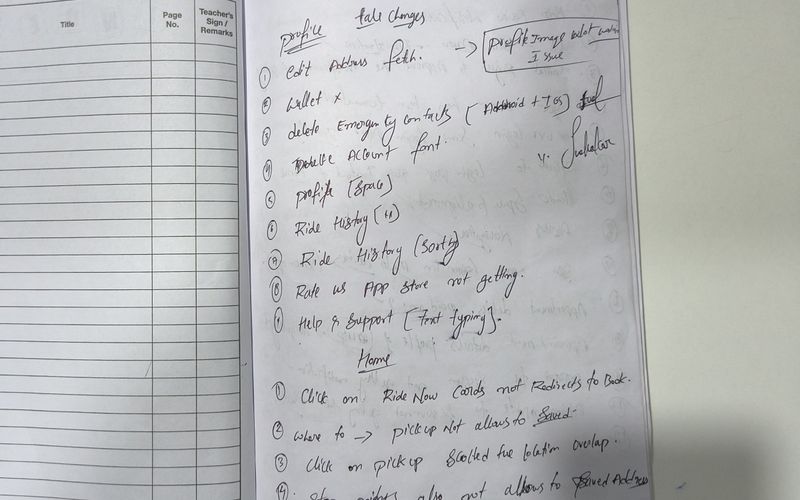 Title
Page No.
Teacher's Sign / Remarks
profile
Changes
① Edit Address fetch. → profile Image
Issue
② wallet x
③ delete Emergenty contacts [Android + IOS]
④ Account font.
⑤ profile [space]
⑥ Ride History [ui]
⑦ Ride History (sorting)
⑧ Rate us App store not getting.
⑨ Help & Support [Text typing].
Home
① Click on Ride Now Coords not Redirects to Book.
② where to → pickup not allows to Saved.
③ Click on pickup location overlap.
④ also not allows to Saved Address